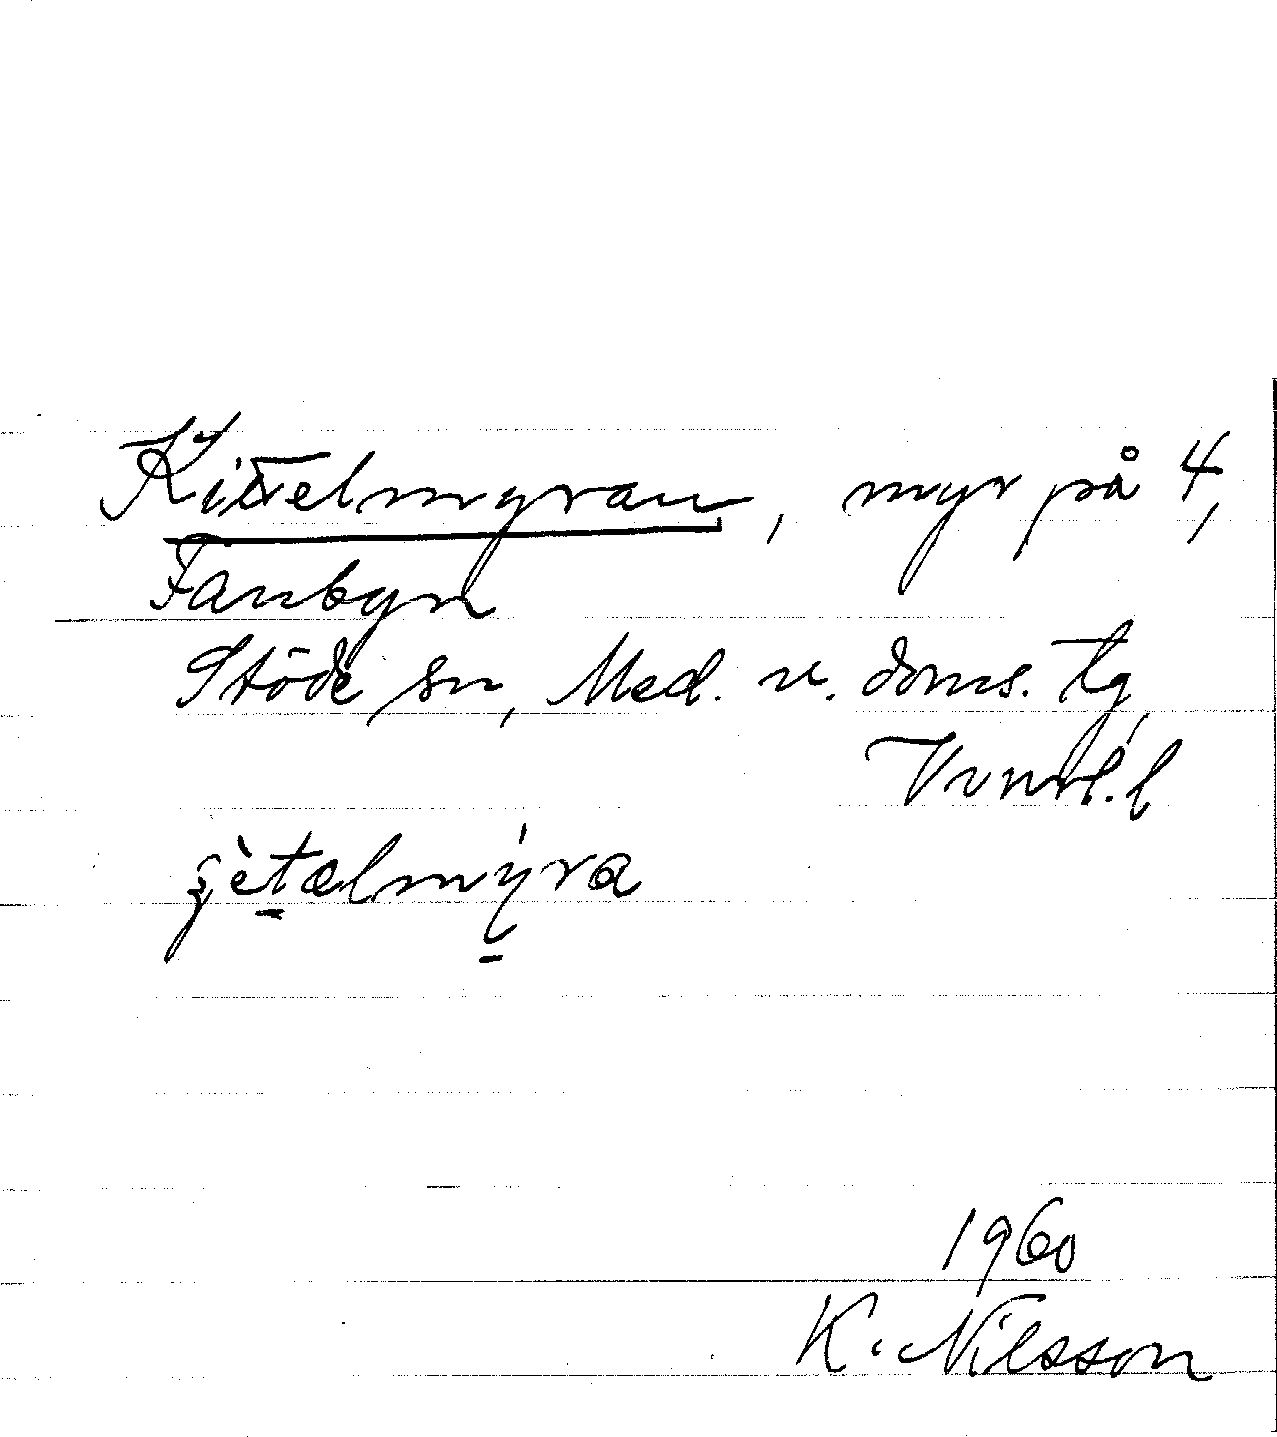 Kittelmyran, myr på 4,
Fanbyn
Stöde sn, Med. v. doms. tg,
Vvnrl. l
1960
K. Nilsson